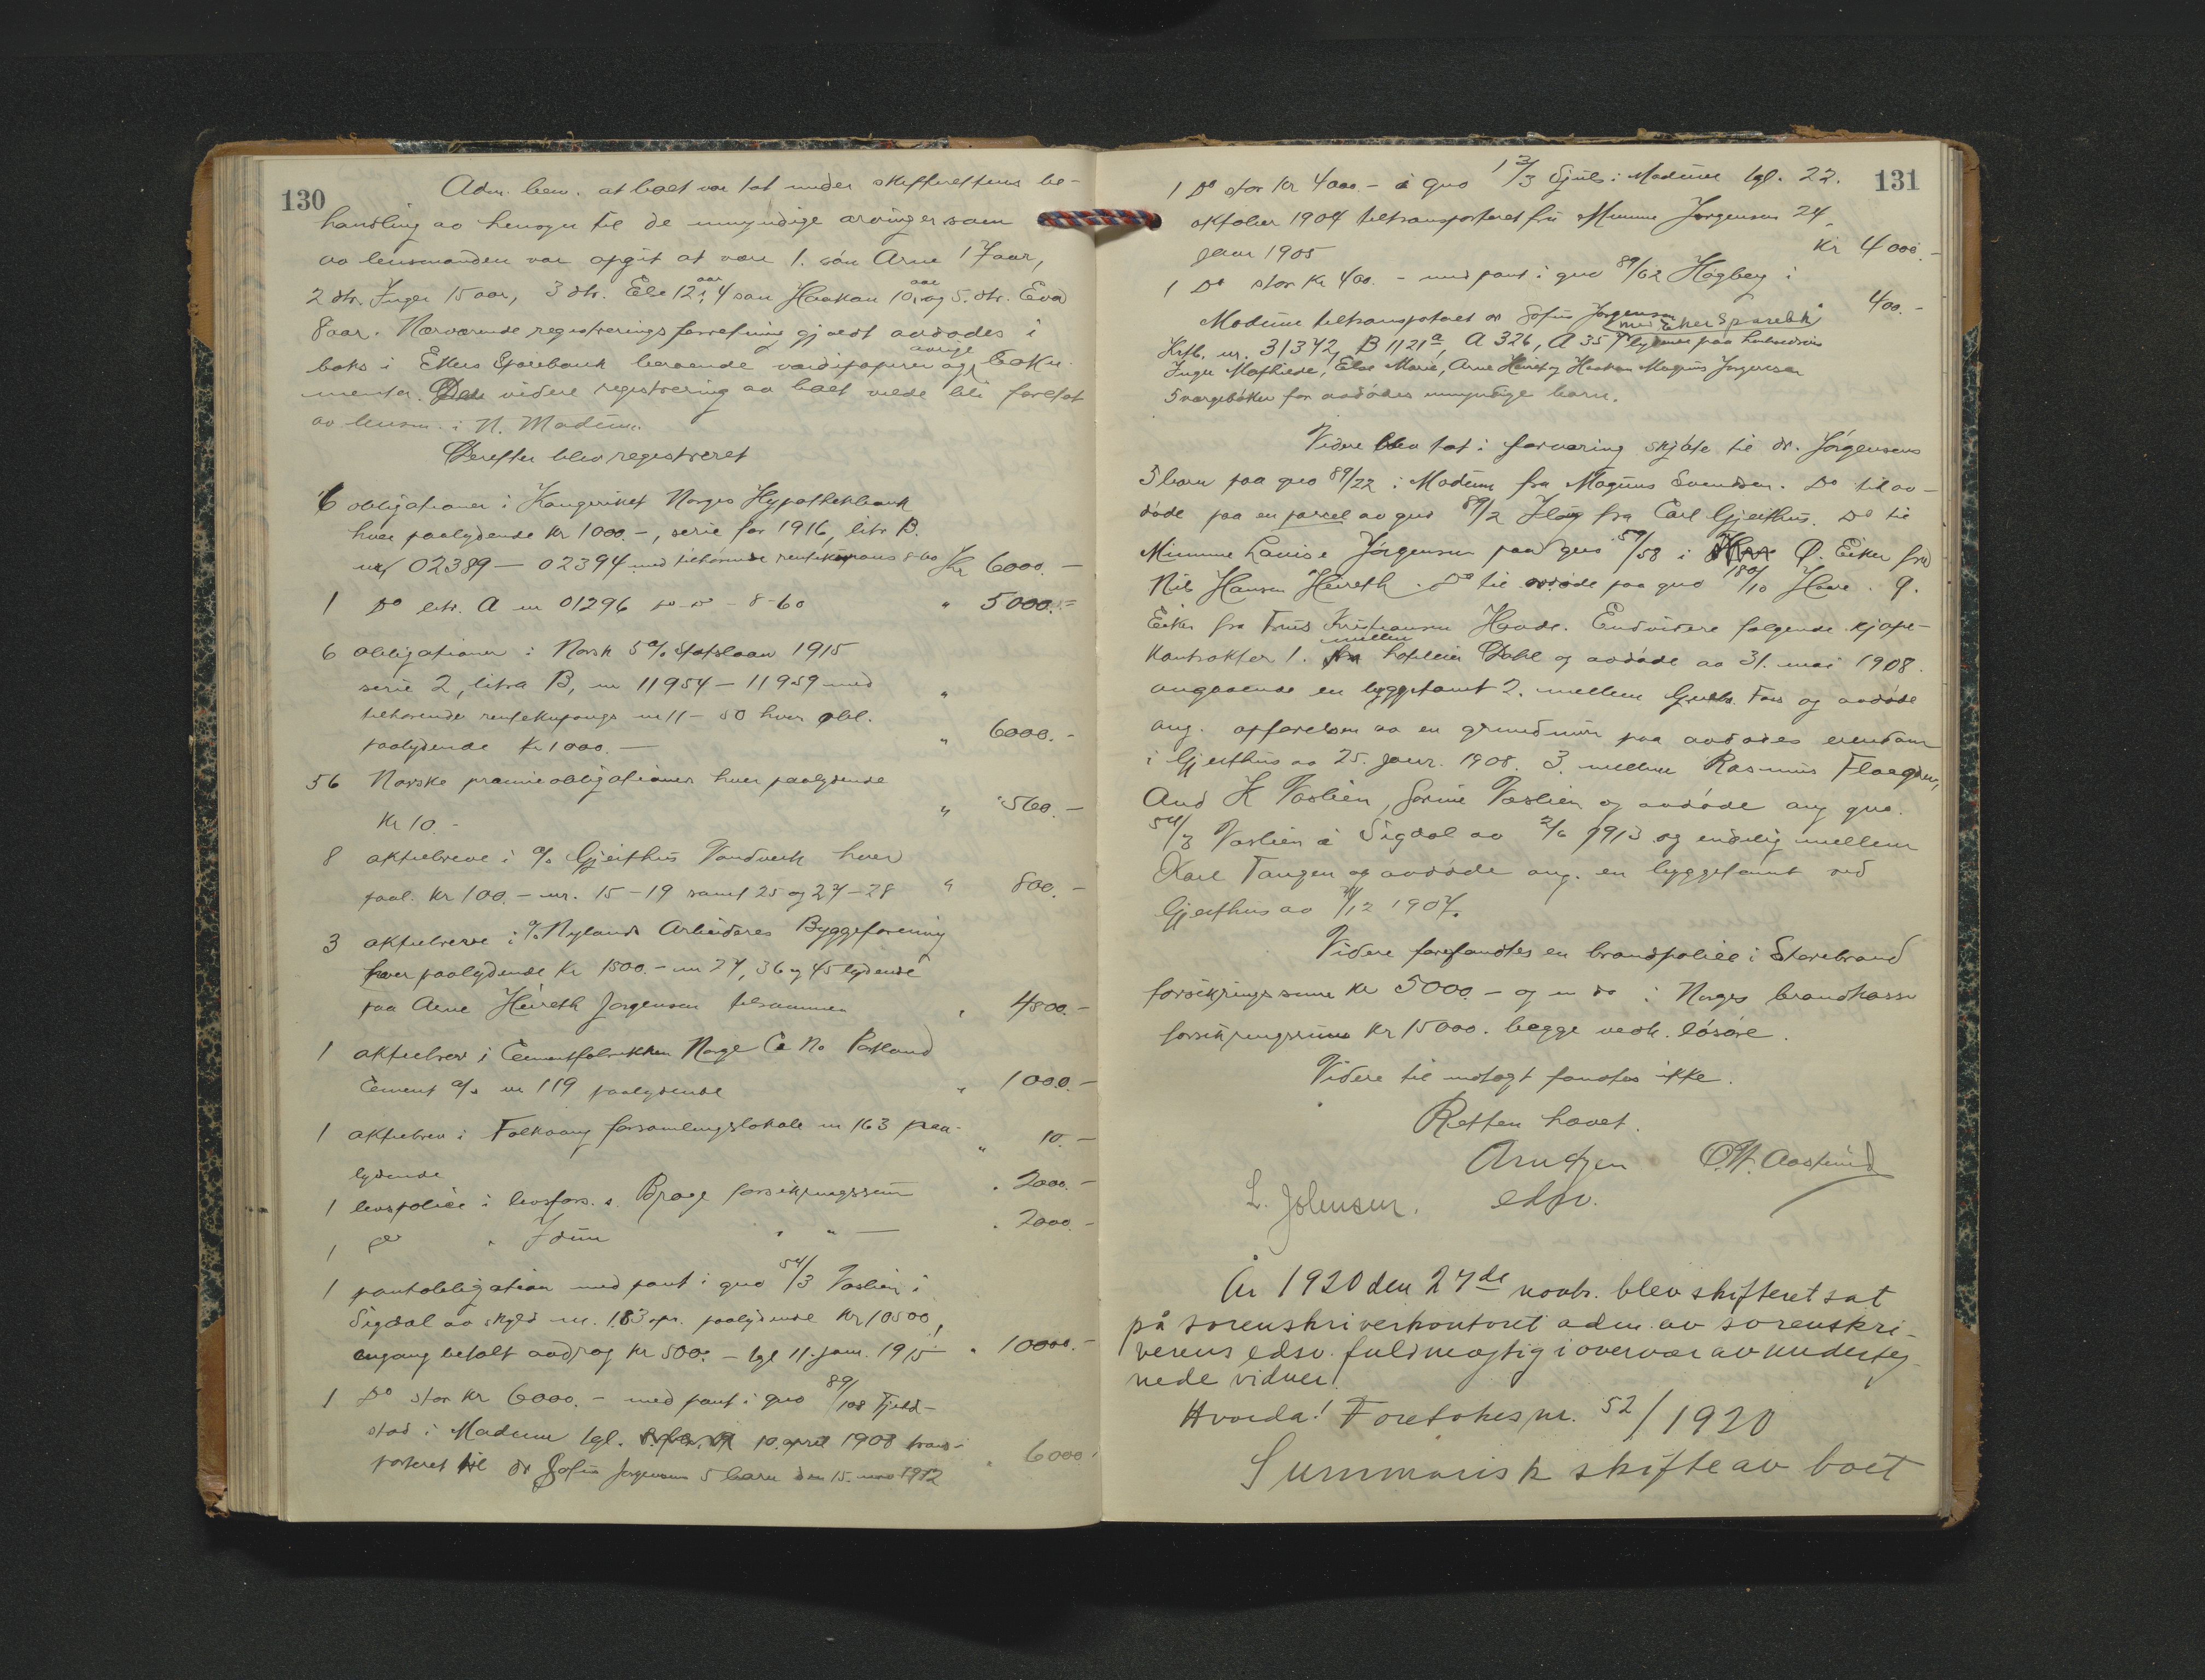 130
Adm. bem. at boet var tat under skifterettens be-
handling av hensyn til de umyndige arvinger som
av lensmanden var opgit at være 1. søn Arne 17 aar,
2 dtr. Inger 15 aar, 3 dtr. Else 12 aar, 4 søn Haakon 10 aar og 5. dtr. Eva
8 aar. Nærværende registreringsforretning gjaldt avdødes i
boks i Ekers Sparebank beroende værdipapirer og øvrige doku-
menter. Den videre registrering av boet vilde bli foretat
av lensm. i N. Modum.
Derefter blev registreret
6 obligationer i Kongeriket Norges Hypothekbank
hver paalydende Kr 1000.-, serie for 1916, litr B.
nr 02389 - 02394 med tilhørende rentekupons 8-60 Kr 6000.-
1 Do litr. A nr 01296 do do - 8-60 " 5000.-
6 obligationer i Norsk 5% Statslaan 1915
serie 2, litra B, nr 11954 - 11959 med "
tilhørende rentekupongs nr 11 - 50 hver obl.
paalydende Kr 1000.- " 6000.-
56 Norske præmieobligationer hver paalydende
Kr 10.- " 560.-
8 aktiebreve i A/S Gjeithus Vandverk hver
paal. Kr 100.- nr. 15-19 samt 25 og 27-28 " 800.-
3 aktiebreve i A/S Nylands Arbeideres Byggeforening
hver paalydende Kr 1500.- nr 27, 36 og 45 lydende
paa Arne Heireth Jørgensen tilsammen " 4800.-
1 aktiebrev i Cementfabrikken Norge Ca No Portland
Cement A/S nr 119 paalydende " 1000.-
1 aktiebrev i Folkvang forsamlingslokale nr 163 paa- " 10.-
lydende
1 livspolice i livsfors. s. Brage forsikringssum " 2000.-
1 do " Idun " " - " 2000.-
1 pantobligation med pant i gno 54/3 Vaslien i
Sigdal av skyld m. 1.83 opr. paalydende Kr 10500,
engang betalt avdrag Kr 500.- tgl 11. jan. 1915 " 10000.-
1 Do stor Kr 6000.- med pant i gno 89/108 Fjeld-
stad i Modum tgl. 10. april 1908 trans-
porteret til dr Sofus Jørgensens 5 barn den 15. 1912 " 6000.-
131
1 Do stor Kr 4000.- i gno 13/3 i Modum tgl. 22.
oktober 1904 tiltransporteret fru Minna Jørgensen 24.
jan 1905 Kr 4000.-
1 Do stor Kr 400.- med pant i gno 89/62 Høgberg i
Modum tiltransporteret dr Sofus Jørgensen 400.-
med Eker Sparebk
Krfb. nr. 31372, B 1121a, A 326, A 357 lydende paa henholdsvis
Inger Mathilde, Else Marie, Arne Heiret og Haakon Magnus Jørgensen
5 vergebøker for avdødes umyndige barn.
Videre blev tat i forvaring skjøte til dr. Jørgensens
5 barn paa gno 89/22 i Modum fra Magnus Svendsen. Do til av-
døde paa en parcel av gno 89/2 fra Carl Gjeithus. Do til
Minna Louise Jørgensen paa gno 57/58 i Ø. Eiker fra
Nils Hansen Heireth. Do til avdøde paa gno 180/10 Haare. Ø.
Eiker fra Kristiansen Hovde. Endvidere følgende kjøpe-
kontrakter 1. mellem Dahl og avdøde av 31. mai 1908
angaaende en byggetomt 2. mellem og avdøde
ang. opførelsen av en grundmur paa avdødes eiendom
i Gjeithus av 25. janr. 1908. 3. mellem Rasmus
And K Vaslien, Vaslien og avdøde ang gno.
54/3 Vaslien i Sigdal av 2/6 1913 og endelig mellem
Karl Tangen og avdøde ang. en byggetomt ved
Gjeithus av /12 1907.
Videre forefandtes en brandpolice i Storebrand
forsikringssum Kr 5000.- og en do i Norges brandkasse
forsikringssum Kr 15000. begge vedk. løsøre.
Videre til indtægt fandtes ikke.
Retten hævet.
Arntzen O.H. Aastund
L. Johnsen. edsv.
År 1920 den 27de novbr. blev skifteret sat
på sorenskriverkontoret adm. av sorenskri-
verens edsv. fuldmægtig i overvær av underteg-
nede vidner!
Hvorda! Foretokes nr. 52/1920
Summarisk skifte av boet